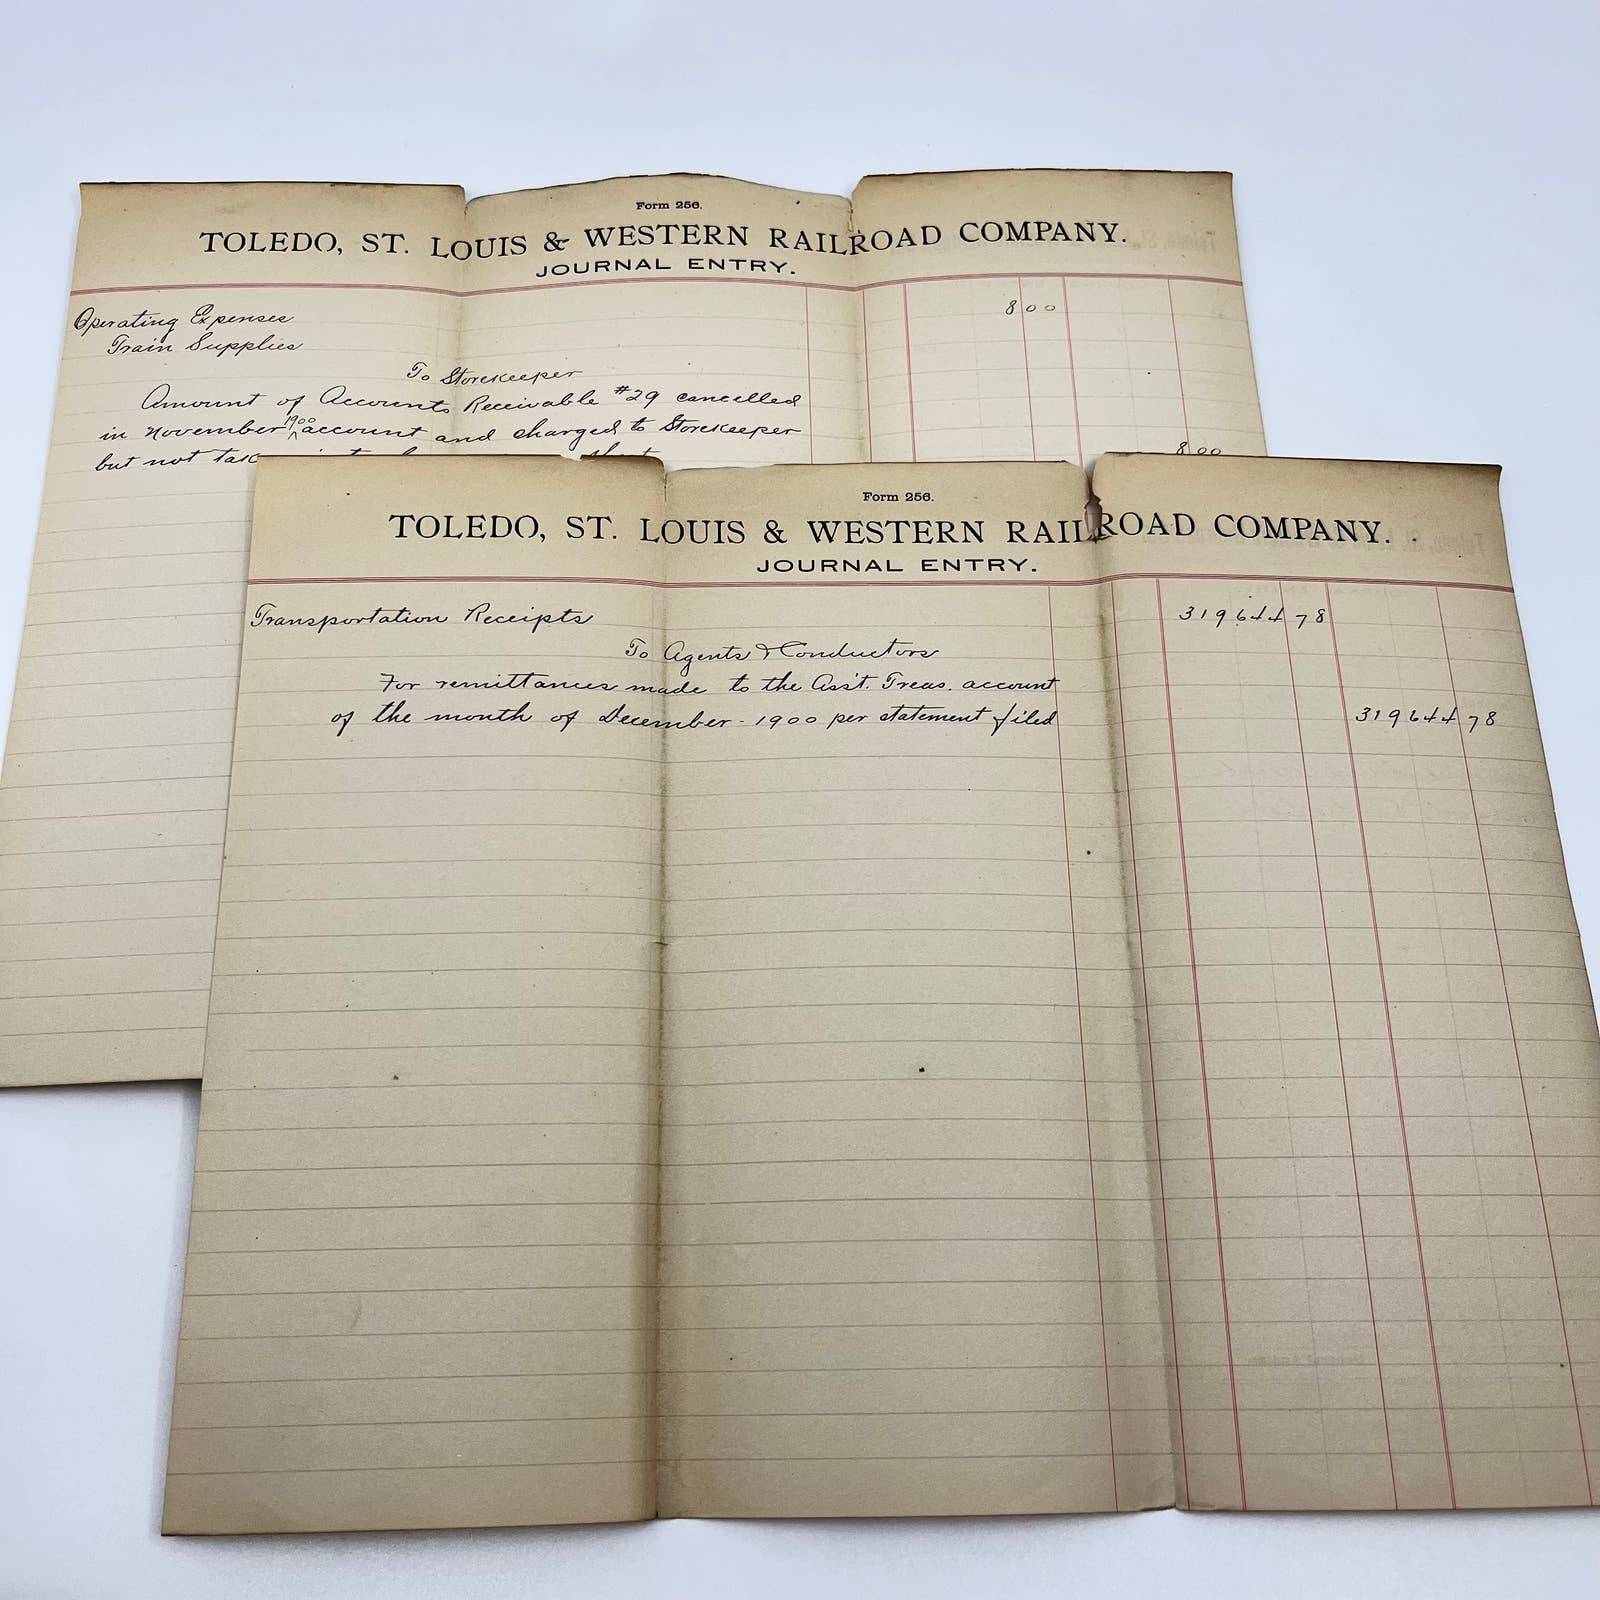 Form 256.
TOLEDO, ST. LOUIS & WESTERN RAILROAD COMPANY.
JOURNAL ENTRY.
Operating Expenses 8 00
Train Supplies
To Storekeeper
Amount of Accounts Receivable #29 cancelled
in November 1900 account and charged to Storekeeper
but not 8 00
Form 256.
TOLEDO, ST. LOUIS & WESTERN RAILROAD COMPANY.
JOURNAL ENTRY.
Transportation Receipts 319644 78
To Agents & Conductors
For remittances made to the Ass't. Treas. account
of the month of December - 1900 per statement filed 319644 78